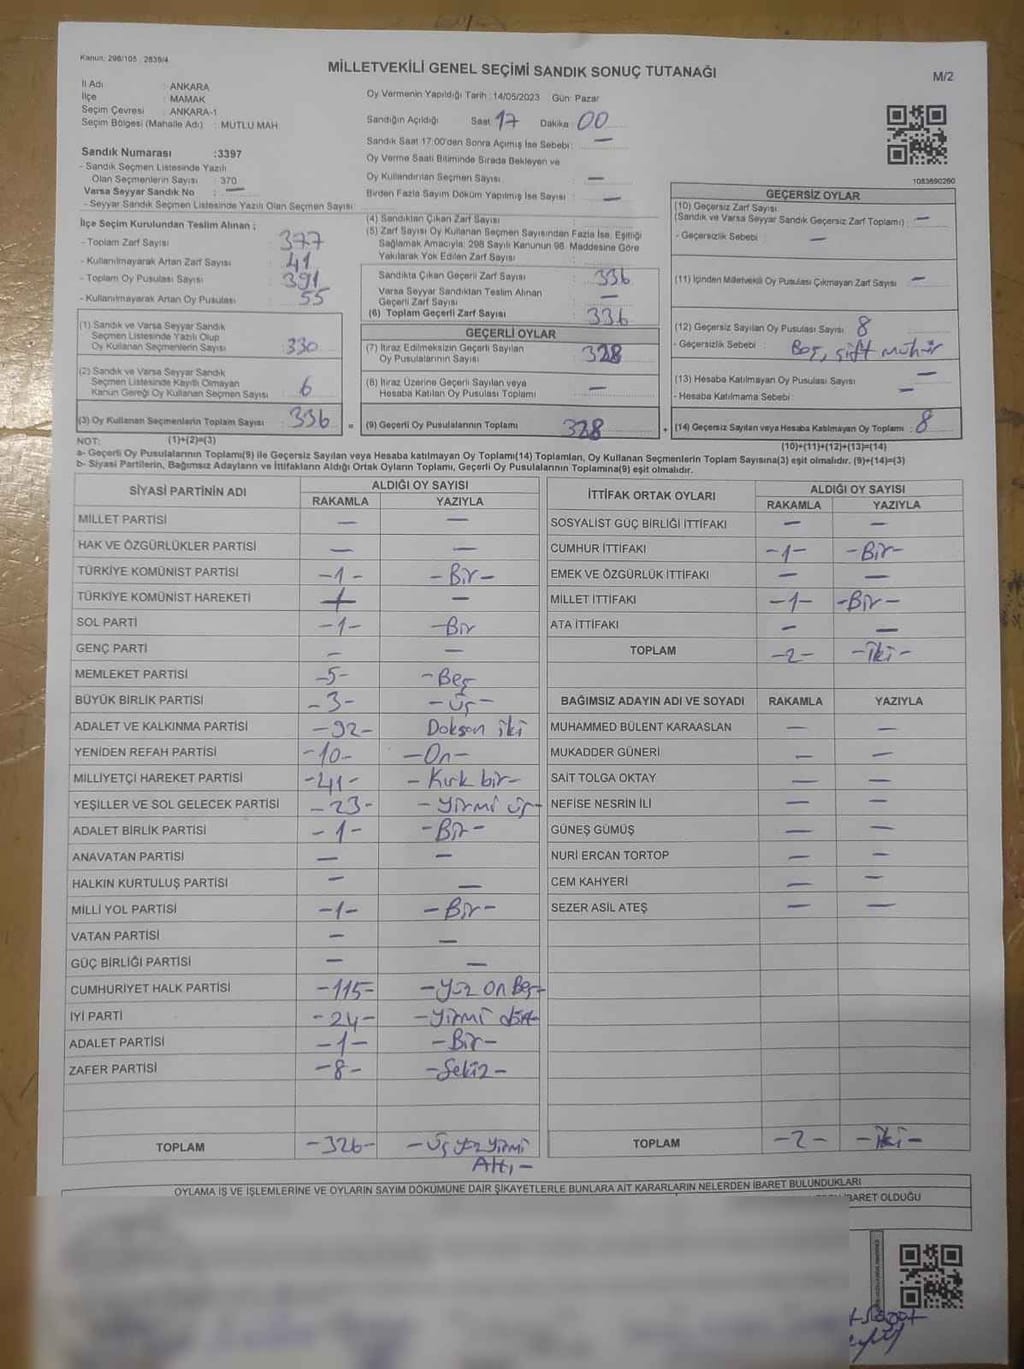 Kanun: 298/105 : 2839/4
MİLLETVEKİLİ GENEL SEÇİMİ SANDIK SONUÇ TUTANAĞI
M/2
İl Adı : ANKARA
İlçe : MAMAK
Seçim Çevresi : ANKARA-1
Seçim Bölgesi (Mahalle Adı) : MUTLU MAH.
Oy Vermenin Yapıldığı Tarih : 14/05/2023 Gün: Pazar
Sandığın Açıldığı Saat 17 Dakika 00
Sandık Saat 17:00'den Sonra Açımış İse Sebebi : —
Oy Verme Saati Bitiminde Sırada Bekleyen ve
Oy Kullandırılan Seçmen Sayısı —
Birden Fazla Sayım Döküm Yapılmış İse Sayısı —
1083690260
Sandık Numarası :3397
- Sandık Seçmen Listesinde Yazılı
Olan Seçmenlerin Sayısı : 370
Varsa Seyyar Sandık No : —
- Seyyar Sandık Seçmen Listesinde Yazılı Olan Seçmen Sayısı:
İlçe Seçim Kurulundan Teslim Alınan ;
- Toplam Zarf Sayısı 377
- Kullanılmayarak Artan Zarf Sayısı : 41
- Toplam Oy Pusulası Sayısı 391
- Kullanılmayarak Artan Oy Pusulası 55
(1) Sandık ve Varsa Seyyar Sandık
Seçmen Listesinde Yazılı Olup
Oy Kullanan Seçmenlerin Sayısı : 330
(2) Sandık ve Varsa Seyyar Sandık
Seçmen Listesinde Kayıtlı Olmayan
Kanun Gereği Oy Kullanan Seçmen Sayısı : 6
(3) Oy Kullanan Seçmenlerin Toplam Sayısı : 336
(4) Sandıktan Çıkan Zarf Sayısı
(5) Zarf Sayısı Oy Kullanan Seçmen Sayısından Fazla İse, Eşitliği
Sağlamak Amacıyla; 298 Sayılı Kanunun 98. Maddesine Göre
Yakılarak Yok Edilen Zarf Sayısı
Sandıkta Çıkan Geçerli Zarf Sayısı : 336
Varsa Seyyar Sandıktan Teslim Alınan
Geçerli Zarf Sayısı —
(6) Toplam Geçerli Zarf Sayısı : 336
GEÇERLİ OYLAR
(7) İtiraz Edilmeksizin Geçerli Sayılan
Oy Pusulalarının Sayısı 328
(8) İtiraz Üzerine Geçerli Sayılan veya
Hesaba Katılan Oy Pusulası Toplamı : —
= (9) Geçerli Oy Pusulalarının Toplamı 328
GEÇERSİZ OYLAR
(10) Geçersiz Zarf Sayısı
(Sandık ve Varsa Seyyar Sandık Geçersiz Zarf Toplamı) : —
- Geçersizlik Sebebi : —
(11) İçinden Milletvekili Oy Pusulası Çıkmayan Zarf Sayısı : —
(12) Geçersiz Sayılan Oy Pusulası Sayısı 8
- Geçersizlik Sebebi : Boş, çift mühür
(13) Hesaba Katılmayan Oy Pusulası Sayısı : —
- Hesaba Katılmama Sebebi : —
+ (14) Geçersiz Sayılan veya Hesaba Katılmayan Oy Toplamı : 8
NOT: (1)+(2)=(3) (10)+(11)+(12)+(13)=(14)
a- Geçerli Oy Pusulalarının Toplamı(9) ile Geçersiz Sayılan veya Hesaba katılmayan Oy Toplamı(14) Toplamları, Oy Kullanan Seçmenlerin Toplam Sayısına(3) eşit olmalıdır. (9)+(14)=(3)
b- Siyasi Partilerin, Bağımsız Adayların ve İttifakların Aldığı Ortak Oyların Toplamı, Geçerli Oy Pusulalarının Toplamına(9) eşit olmalıdır.
SİYASİ PARTİNİN ADI ALDIĞI OY SAYISI
RAKAMLA YAZIYLA
MİLLET PARTİSİ — —
HAK VE ÖZGÜRLÜKLER PARTİSİ — —
TÜRKİYE KOMÜNİST PARTİSİ -1- -Bir-
TÜRKİYE KOMÜNİST HAREKETİ —
SOL PARTİ -1- -Bir
GENÇ PARTİ — —
MEMLEKET PARTİSİ -5- -Beş
BÜYÜK BİRLİK PARTİSİ -3- -Üç-
ADALET VE KALKINMA PARTİSİ -92- Doksan iki
YENİDEN REFAH PARTİSİ -10- -On-
MİLLİYETÇİ HAREKET PARTİSİ -41- - Kırk bir-
YEŞİLLER VE SOL GELECEK PARTİSİ -23- - Yirmi üç-
ADALET BİRLİK PARTİSİ -1- -Bir-
ANAVATAN PARTİSİ — —
HALKIN KURTULUŞ PARTİSİ — —
MİLLİ YOL PARTİSİ -1- -Bir-
VATAN PARTİSİ — —
GÜÇ BİRLİĞİ PARTİSİ — —
CUMHURİYET HALK PARTİSİ -115- -Yüz On Beş-
İYİ PARTİ -24- -Yirmi dört-
ADALET PARTİSİ -1- -Bir-
ZAFER PARTİSİ -8- -Sekiz-
TOPLAM -326- -Üç yüz yirmi
Altı-
İTTİFAK ORTAK OYLARI ALDIĞI OY SAYISI
RAKAMLA YAZIYLA
SOSYALİST GÜÇ BİRLİĞİ İTTİFAKI — —
CUMHUR İTTİFAKI -1- -Bir-
EMEK VE ÖZGÜRLÜK İTTİFAKI — —
MİLLET İTTİFAKI -1- -Bir-
ATA İTTİFAKI — —
TOPLAM -2- -İki-
BAĞIMSIZ ADAYIN ADI VE SOYADI RAKAMLA YAZIYLA
MUHAMMED BÜLENT KARAASLAN — —
MUKADDER GÜNERİ — —
SAİT TOLGA OKTAY — —
NEFİSE NESRİN İLİ — —
GÜNEŞ GÜMÜŞ — —
NURİ ERCAN TORTOP — —
CEM KAHYERİ — —
SEZER ASİL ATEŞ — —
TOPLAM -2- -iki-
OYLAMA İŞ VE İŞLEMLERİNE VE OYLARIN SAYIM DÖKÜMÜNE DAİR ŞİKAYETLERLE BUNLARA AİT KARARLARIN NELERDEN İBARET BULUNDUKLARI
İBARET OLDUĞU